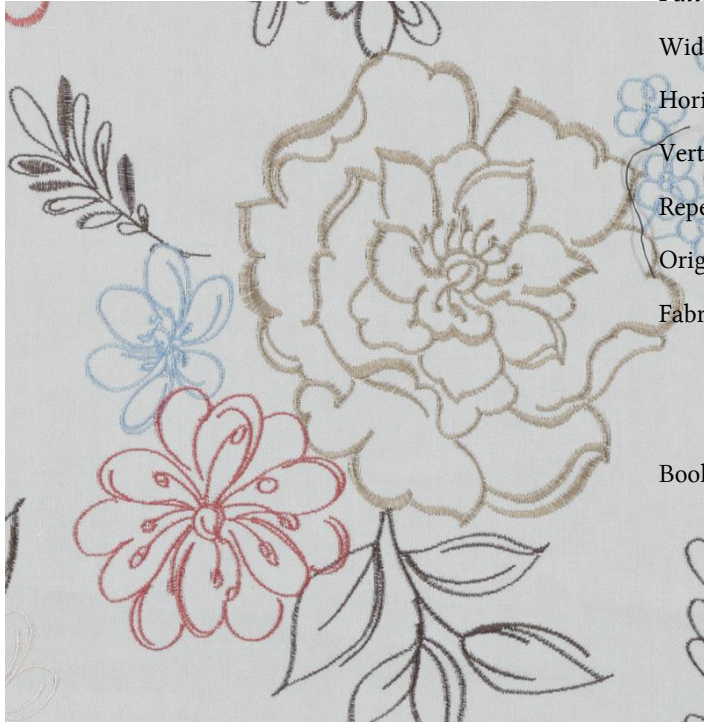 Wid
Hori
Vert
Repe
Orig
Fabr
Bool